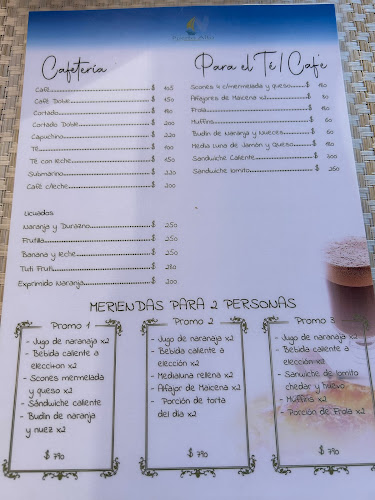 Cafetería
Café $ 105
Café Doble $ 150
Cortado $ 110
Cortado Doble $ 200
Capuchino $ 220
Té $ 100
Té con leche $ 150
Submarino $ 220
Café c/leche $ 200
Para el Té / Café
Scones x c/mermelada y queso $ 190
Alfajores de Maicena x2 $
Frola $ 150
Muffins $ 60
Budín de Naranja y Nueces $ 60
Media Luna de Jamón y Queso $ 190
Sandwiche Caliente $ 300
Sandwiche lomito $ 360
Licuados
Naranja y Durazno $ 250
Frutilla $ 250
Banana y leche $ 250
Tuti Fruti $ 280
Exprimido Naranja $ 200
MERIENDAS PARA 2 PERSONAS
Promo 1
- Jugo de naranaja x2
- Bebida caliente a
eleccion x2
- Scones mermelada
y queso x2
- Sándwiche caliente
- Budín de naranja
y nuez x2
$ 790
Promo 2
- Jugo de naranaja x2
- Bebida caliente a
elección x2
- Medialuna rellena x2
- Alfajor de Maicena x2
- Porción de torta
del día x2
$ 790
Promo 3
- Jugo de naranaja x2
- Bebida caliente a
elección x2
- Sanwiche de lomito
chedar y huevo
- Muffins x2
- Porción de Frola x2
$ 790